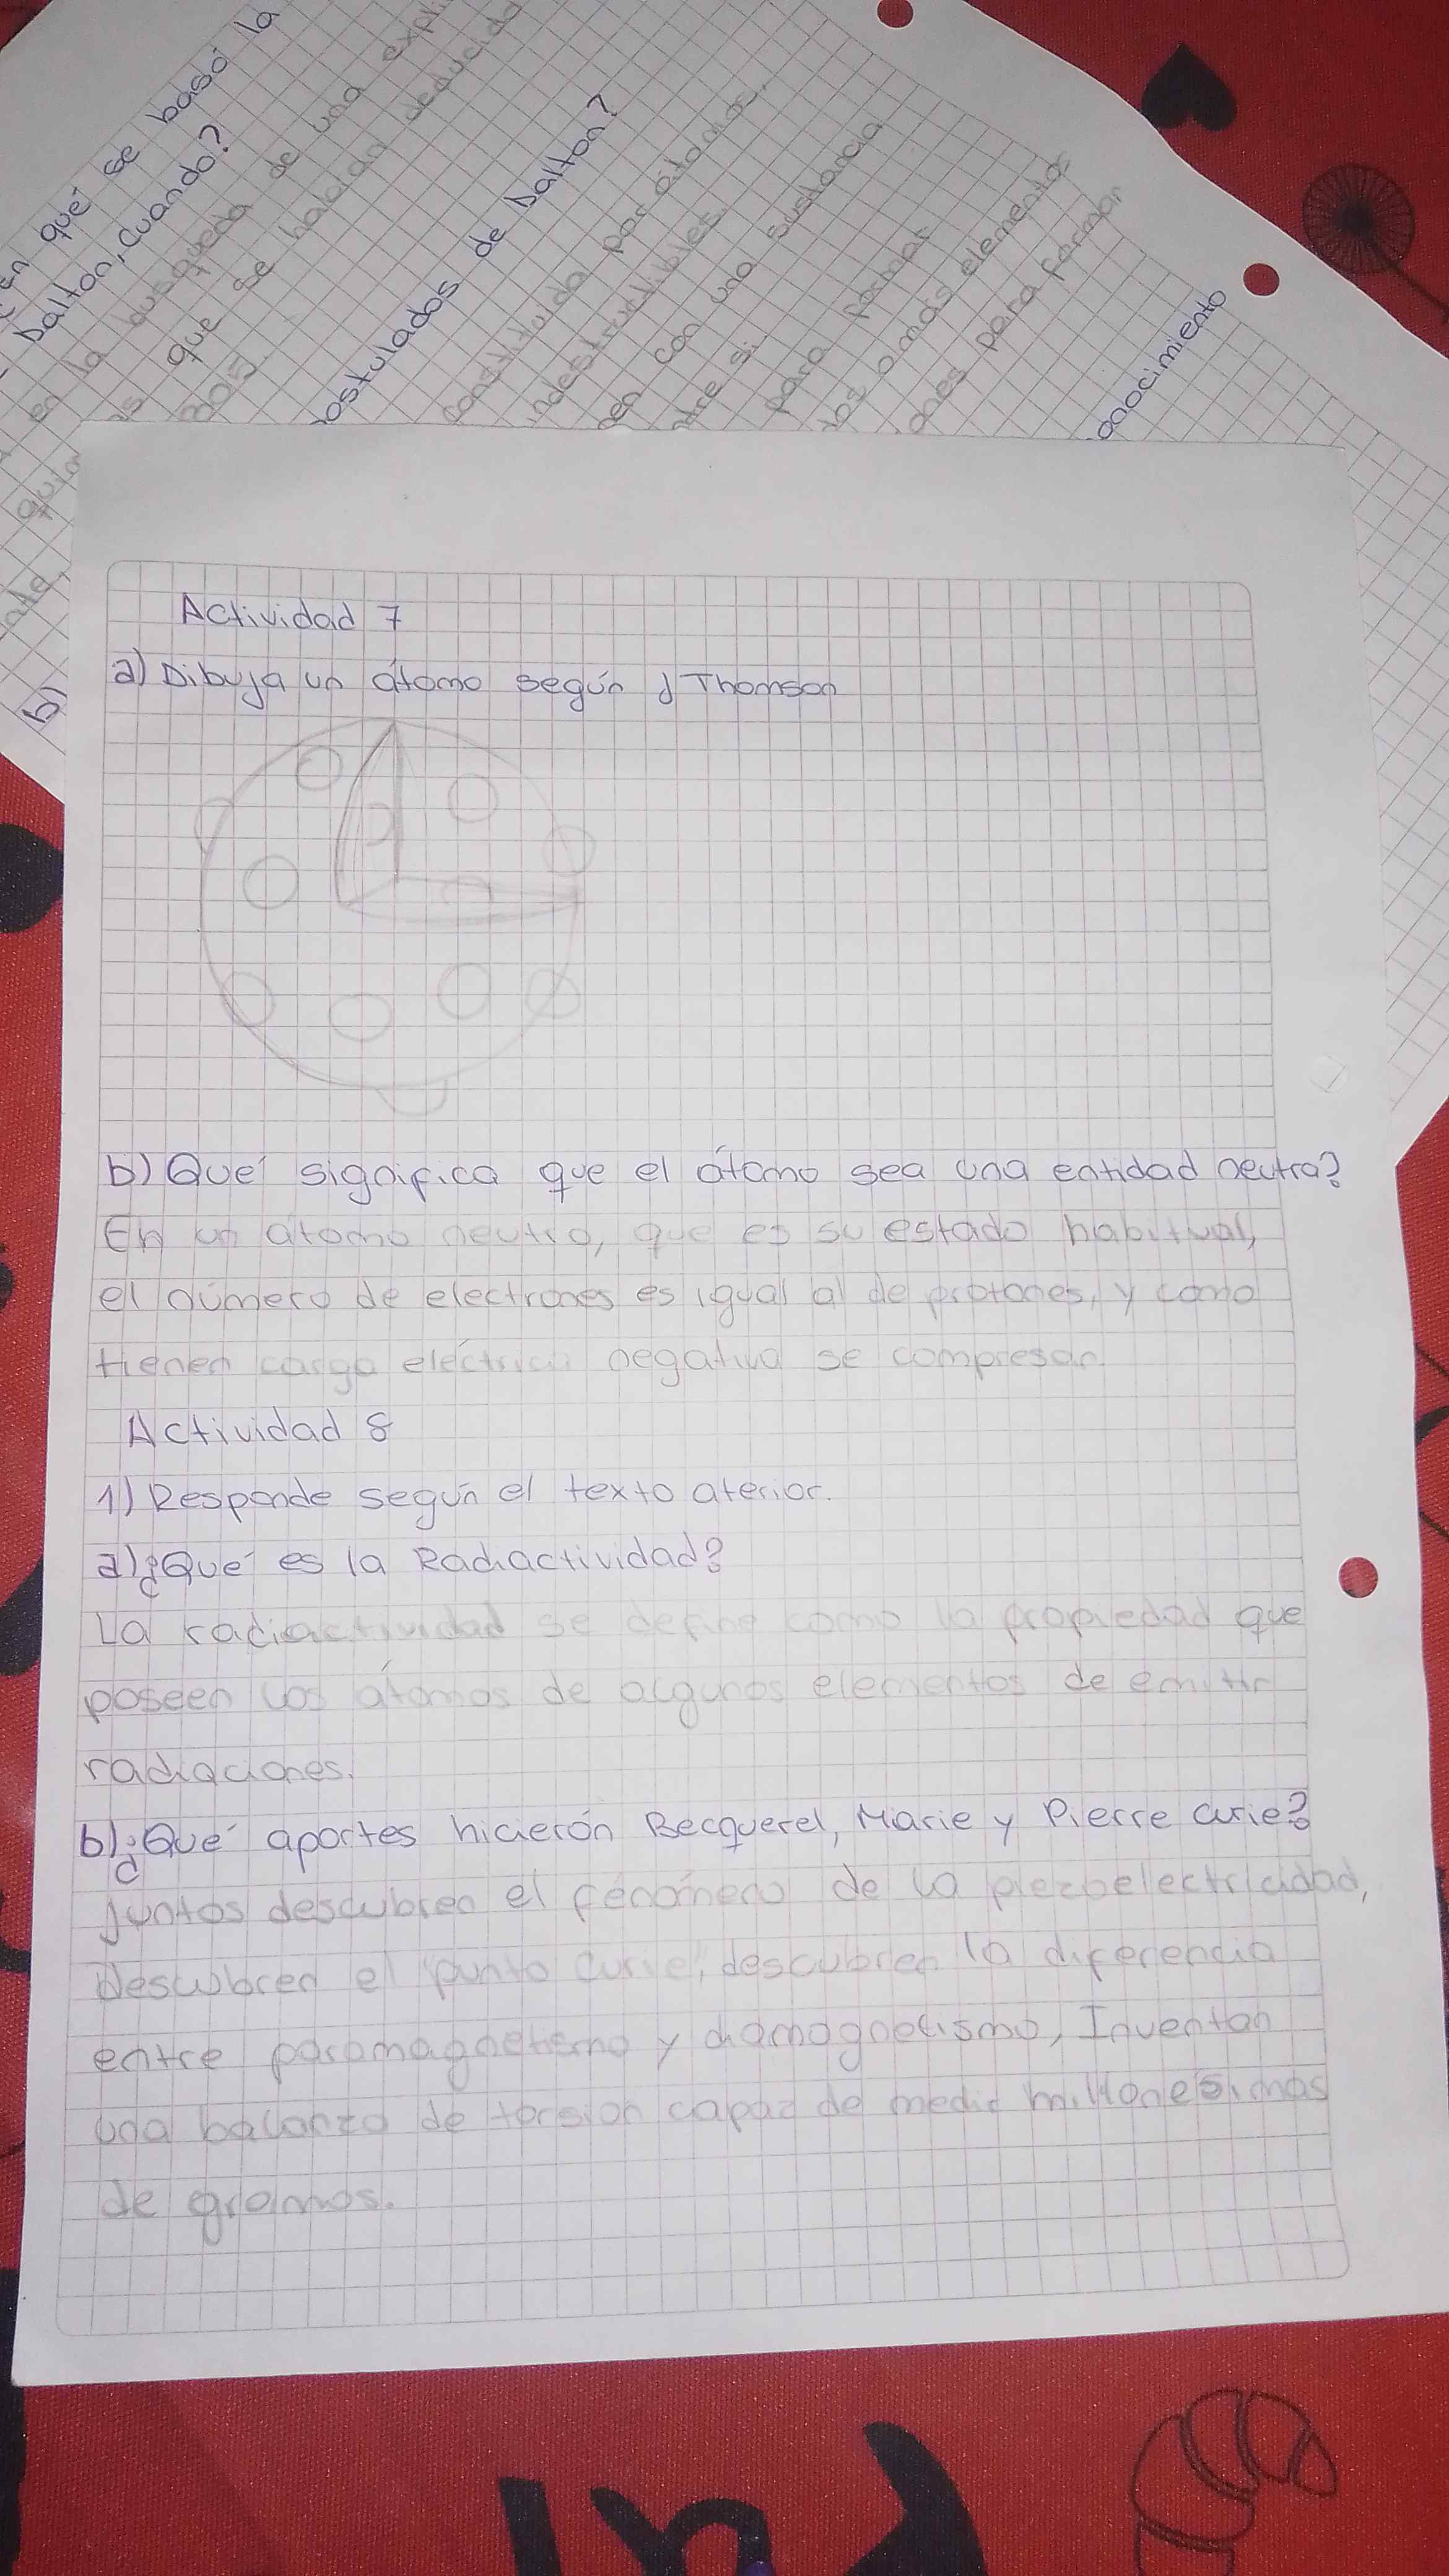 en que se basó la
Dalton, Cuando?
en la busqueda de una expli
que se habían deducido
postulados de Dalton?
constituida por átomos,
indestructibles.
con una sustancia
entre si.
para formar
dos o más elementos
ones para formar
onocimiento
b)
Actividad 7
a) Dibuja un átomo según J Thomson
b) Qué significa que el átomo sea una entidad neutra?
En un átomo neutro, que es su estado habitual,
el número de electrones es igual al de protones, y como
tienen carga eléctrica negativa se compresan.
Actividad 8
1) Responde según el texto aterior.
a) ¿Qué es la Radiactividad?
La radiactividad se define como la propiedad que
poseen los átomos de algunos elementos de emitir
radiaciones.
b) ¿Qué aportes hicierón Becquerel, Marie y Pierre curie?
juntos descubren el fenómeno de la piezoelectricidad,
Descubren el "punto Curie", descubren la diferencia
entre paramagnetismo y diamagnetismo, Inventan
una balanza de torsión capaz de medir millonesimas
de gramos.